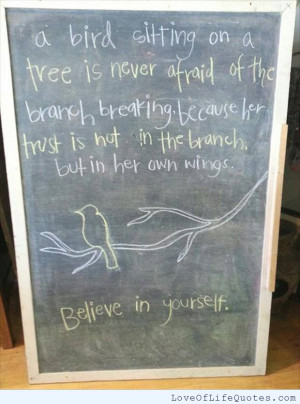 a bird sitting on a
tree is never afraid of the
branch breaking, because her
trust is not in the branch,
but in her own wings.
Believe in yourself.
LoveOfLifeQuotes.com